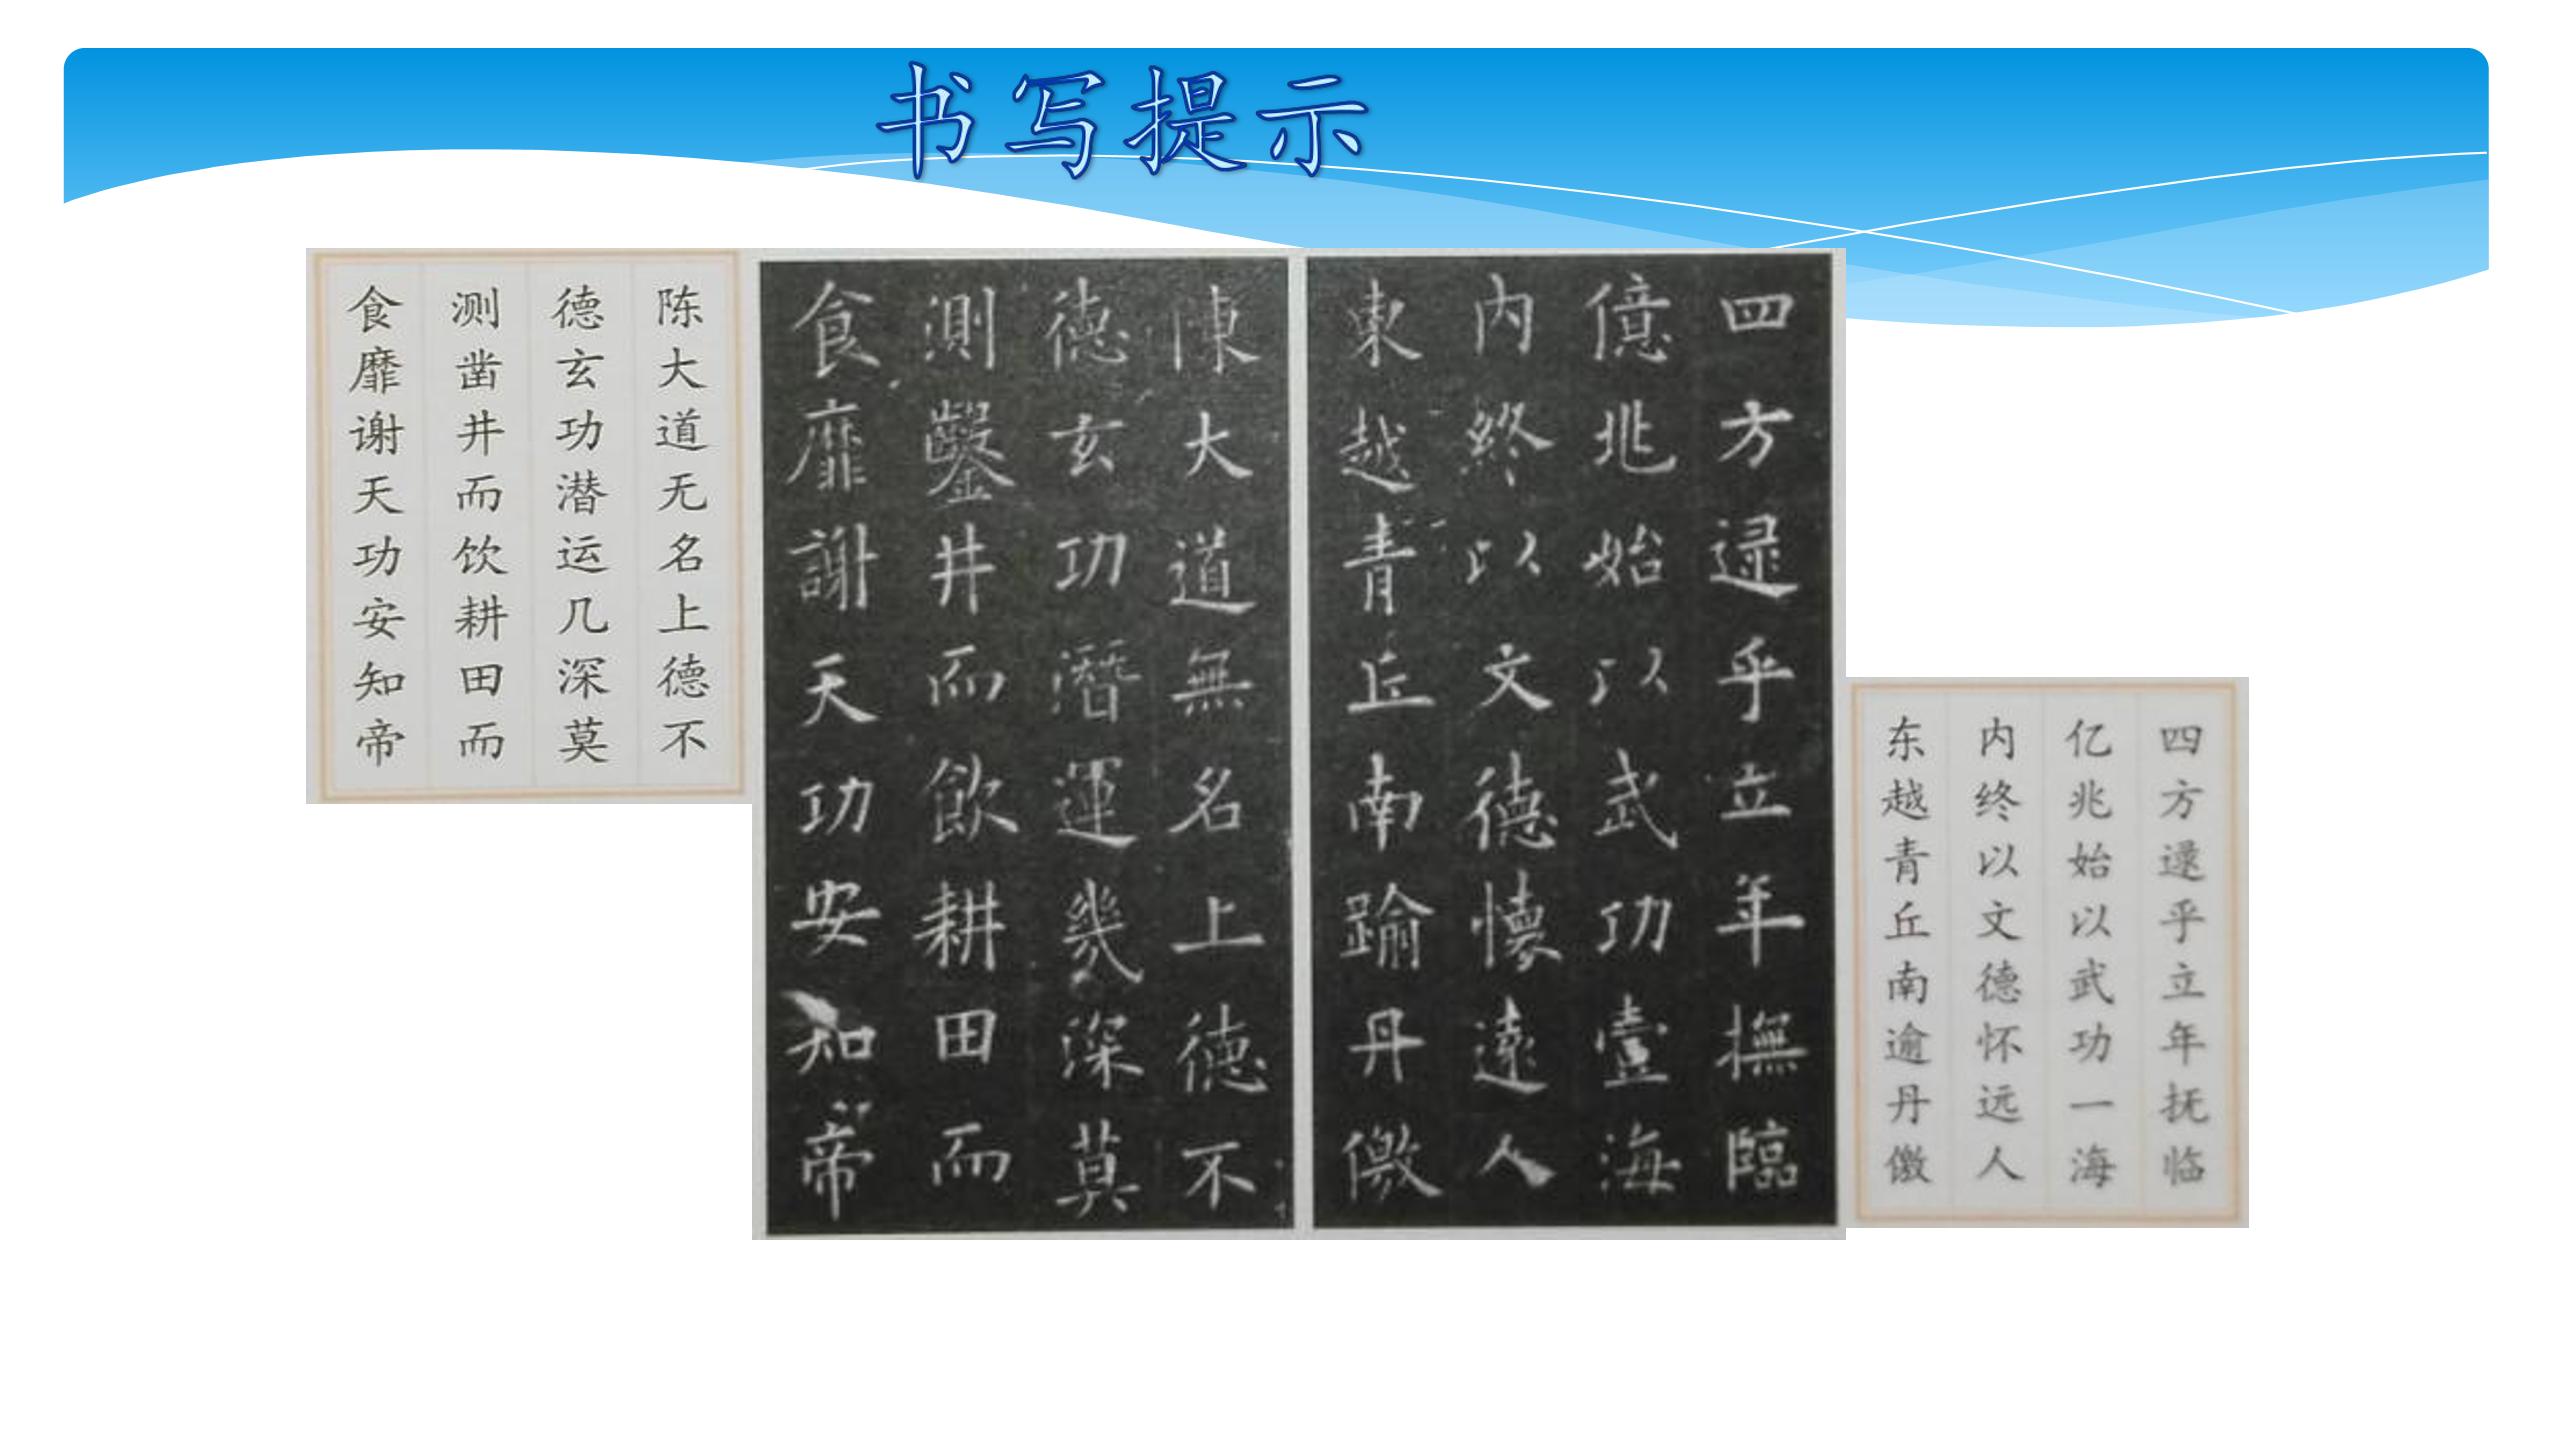 书写提示
四方逯乎立年抚临
亿兆始以武功一海
内终以文德怀远人
东越青丘南逾丹儌
四方逯乎立年撫臨
億兆始以武功壹海
内終以文德懷遠人
東越青丘南踰丹儌
陳大道無名上德不
德玄功潛運幾深莫
測鑿井而飲耕田而
食靡謝天功安知帝
陈大道无名上德不
德玄功潜运几深莫
测凿井而饮耕田而
食靡谢天功安知帝